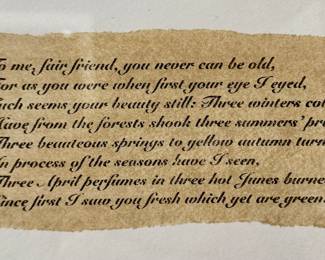 To me, fair friend, you never can be old,
For as you were when first your eye I eyed,
Such seems your beauty still: Three winters cold
Have from the forests shook three summers' pri
Three beauteous springs to yellow autumn turn
In process of the seasons have I seen,
Three April perfumes in three hot Junes burne
Since first I saw you fresh which yet are green.